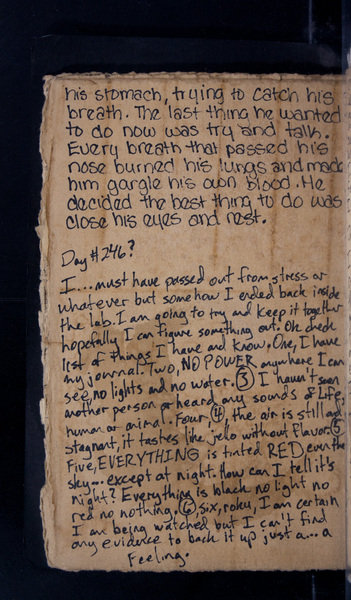 his stomach, trying to catch his
breath. The last thing he wanted
to do now was try and talk.
Every breath that passed his
nose burned his lungs and made
him gargle his own blood. He
decided the best thing to do was
close his eyes and rest.
Day #246?
I...must have passed out from stress or
whatever but somehow I ended back inside
the lab. I am going to try and keep it together
hopefully I can figure something out. Ok check
list of things I have and know. One, I have
my journal. Two, NO POWER anywhere I can
see, no lights and no water. ③ I haven't seen
another person or heard any sounds of life,
human or animal. Four, ④, the air is still and
stagnant, it tastes like jello without flavor. ⑤
Five, EVERYTHING is tinted RED even the
sky... except at night. How can I tell it's
night? Everything is black no light no
red no nothing. ⑥, six, roku, I am certain
I am being watched but I can't find
any evidence to back it up just a... a
Feeling.